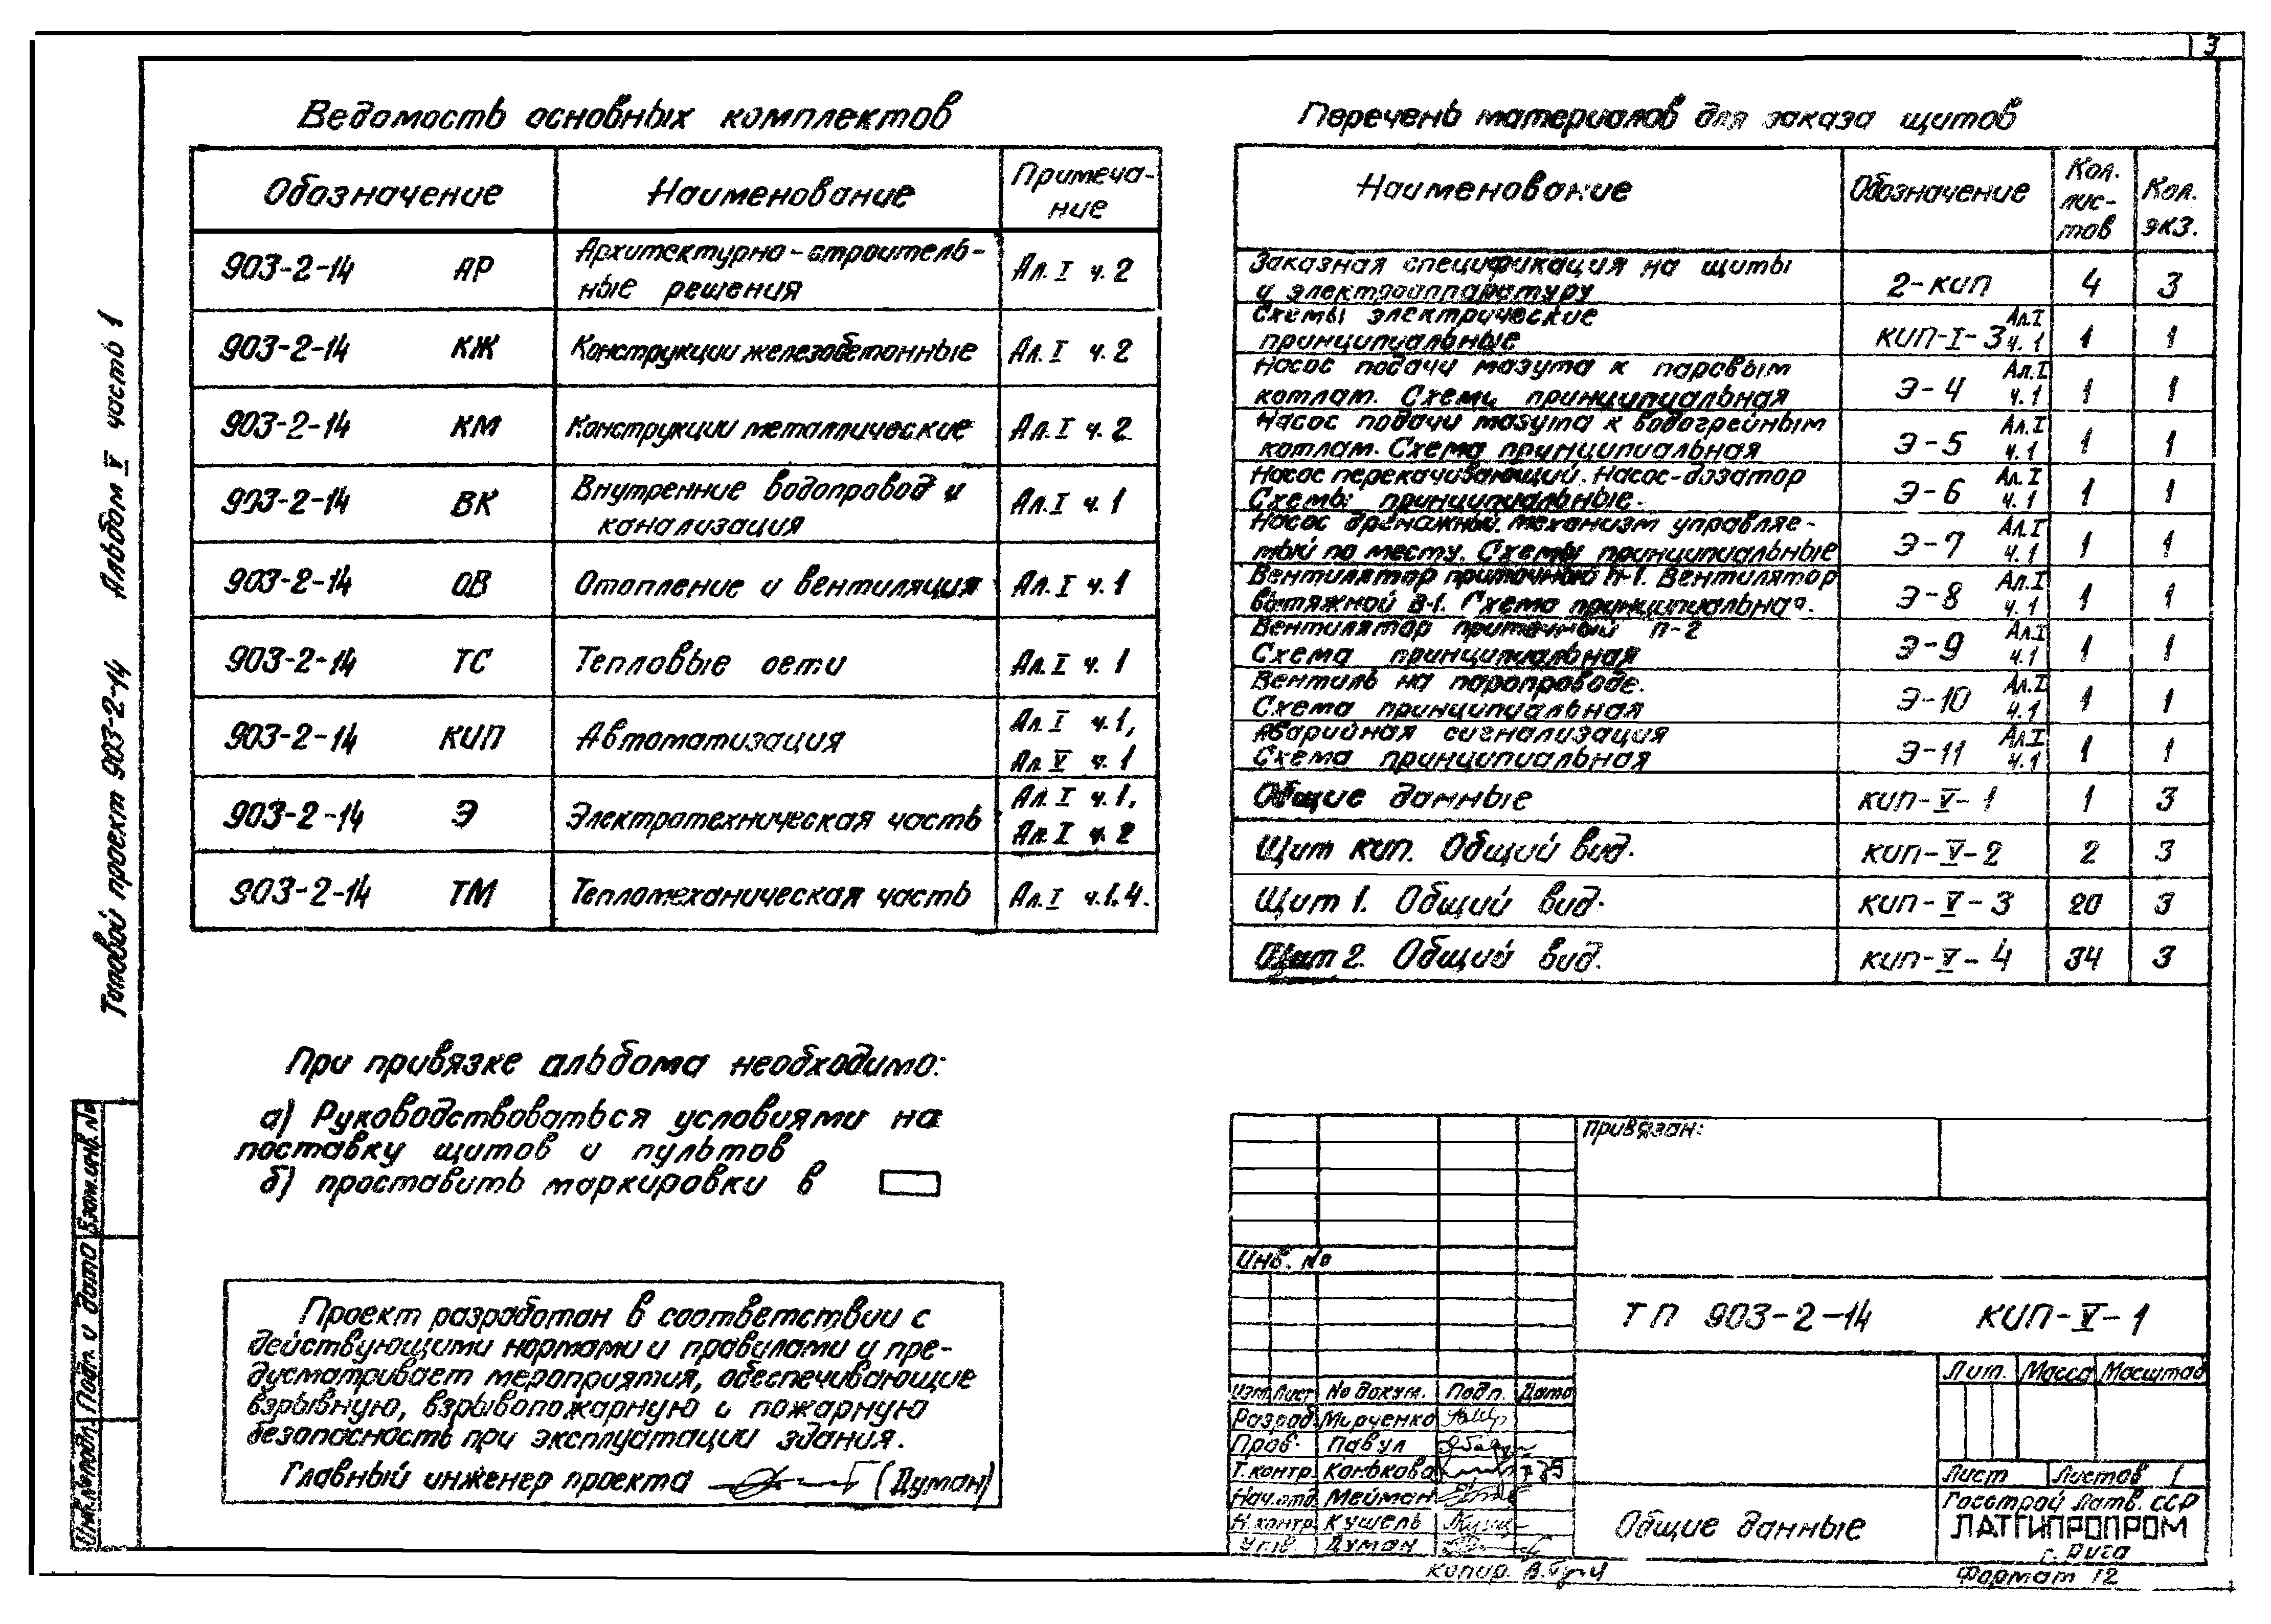 3
Типовой проект 903-2-14 Альбом V часть 1
Ведомость основных комплектов
Обозначение Наименование Примеча-
ние
903-2-14 АР Архитектурно-строитель-
ные решения Ал. I ч. 2
903-2-14 КЖ Конструкции железобетонные Ал. I ч. 2
903-2-14 КМ Конструкции металлические Ал. I ч. 2
903-2-14 ВК Внутренние водопровод и
канализация Ал. I ч. 1
903-2-14 ОВ Отопление и вентиляция Ал. I ч. 1
903-2-14 ТС Тепловые сети Ал. I ч. 1
903-2-14 КИП Автоматизация Ал. I ч. 1,
Ал. V ч. 1
903-2-14 Э Электротехническая часть Ал. I ч. 1,
Ал. I ч. 2
903-2-14 ТМ Тепломеханическая часть Ал. I ч. 1.4.
При привязке альбома необходимо:
а) Руководствоваться условиями на
поставку щитов и пультов
б) проставить маркировки в
Проект разработан в соответствии с
действующими нормами и правилами и пре-
дусматривает мероприятия, обеспечивающие
взрывную, взрывопожарную и пожарную
безопасность при эксплуатации здания.
Главный инженер проекта (Думан)
Перечень материалов для заказа щитов
Наименование Обозначение Кол.
лис-
тов Кол.
экз.
Заказная спецификация на щиты
и электроаппаратуру 2-КИП 4 3
Схемы электрические
принципиальные КИП-I-3 Ал. I ч. 1 1 1
Насос подачи мазута к паровым
котлам. Схема принципиальная Э-4 Ал. I ч. 1 1 1
Насос подачи мазута к водогрейным
котлам. Схема принципиальная Э-5 Ал. I ч. 1 1 1
Насос перекачивающий. Насос-дозатор
Схемы принципиальные. Э-6 Ал. I ч. 1 1 1
Насос дренажный. механизм управляе-
мый по месту. Схемы принципиальные Э-7 Ал. I ч. 1 1 1
Вентилятор приточный П-1. Вентилятор
вытяжной В-1. Схема принципиальная. Э-8 Ал. I ч. 1 1 1
Вентилятор приточный П-2
Схема принципиальная Э-9 Ал. I ч. 1 1 1
Вентиль на паропроводе.
Схема принципиальная Э-10 Ал. I ч. 1 1 1
Аварийная сигнализация
Схема принципиальная Э-11 Ал. I ч. 1 1 1
Общие данные КИП-V-1 1 3
Щит КИП. Общий вид. КИП-V-2 2 3
Щит 1. Общий вид. КИП-V-3 20 3
Щит 2. Общий вид. КИП-V-4 34 3
Привязан:
Инв. №
ТП 903-2-14 КИП-V-1
Лит. Масса Масштаб
Изм. Лист № докум. Подп. Дата
Разраб. Мирченко
Пров. Павул
Т.контр. Конькова
Нач.отд. Мейман
Н.контр. Кушель
Утв. Думан
Лист Листов 1
Общие данные
Госстрой Латв. ССР
ЛАТГИПРОПРОМ
г. Рига
Копир. Формат 12
Инв.№ подл. Подп. и дата Взам. инв. №